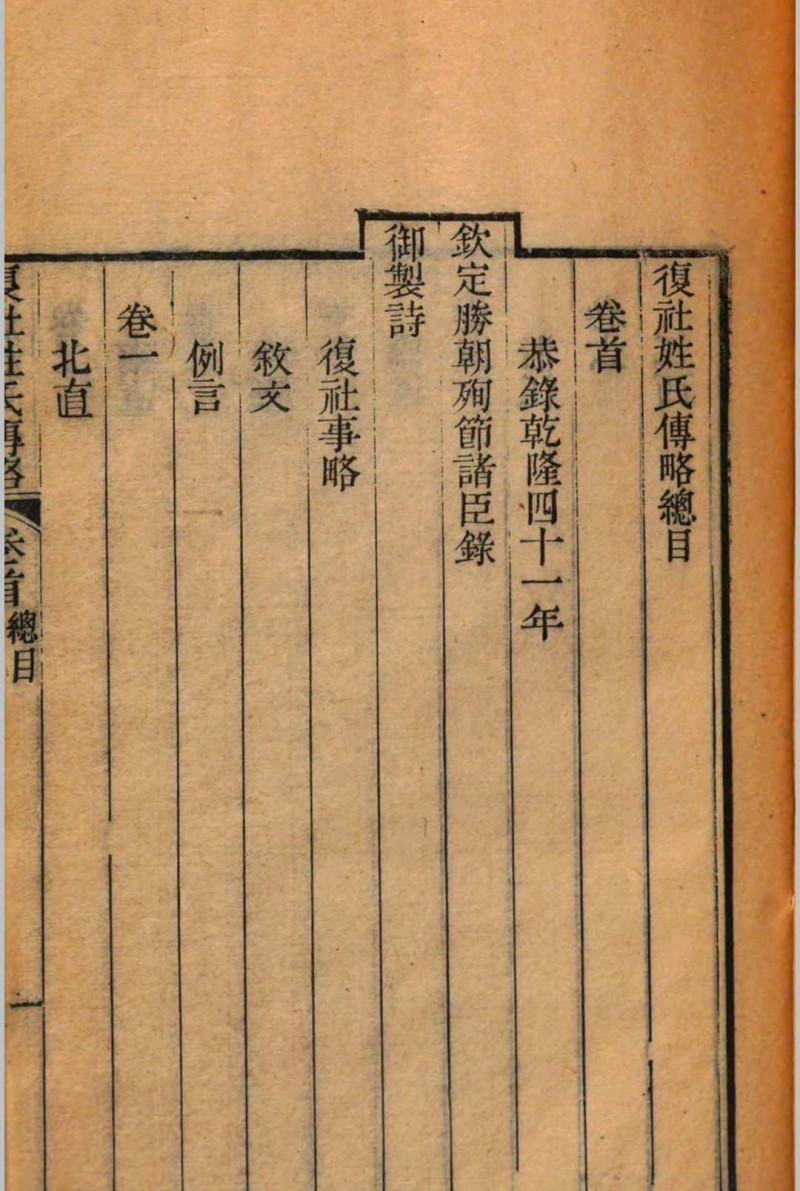 復社姓氏傳略總目
卷首
恭錄乾隆四十一年
欽定勝朝殉節諸臣錄
御製詩
復社事略
敘文
例言
卷一
北直
復社姓氏傳略 卷首 總目 一